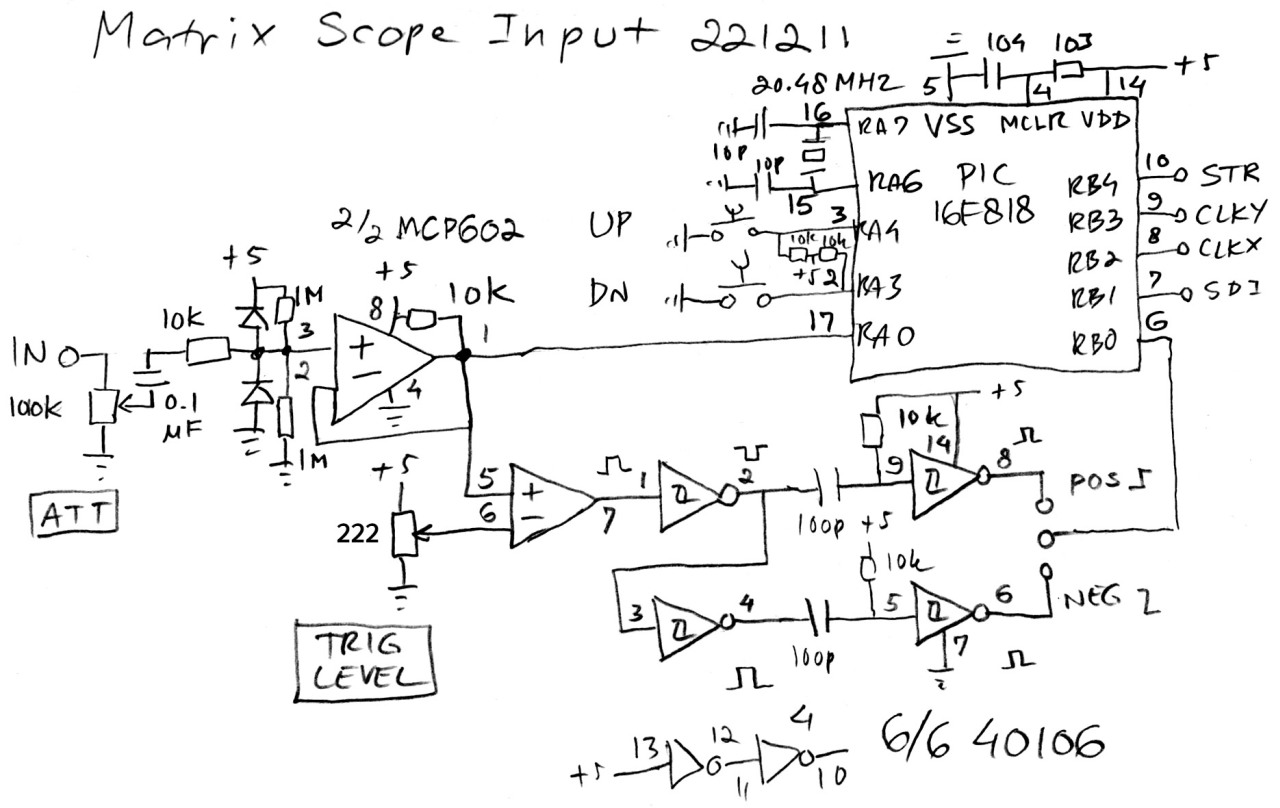 Matrix Scope Input 221211
= 104 103
+5
20.48 MHZ 5 4 14
16
RA7 VSS MCLR VDD
10P
10P
RA6 PIC 10 STR
15 16F818 RB4
2/2 MCP602 UP 3 RA4 RB3 9 CLKY
10k 10k
+5 +5 +5 2 RB2 8 CLKX
8 10k DN RA3 RB1 7 SDI
1M
10k 3 1 17 RA0 RB0 6
IN + −
2 4
100k 0.1
μF
1M
+5
10k
14
ATT +5 5 + 1 2 9 8 POS
6 − 7
222 100p +5
10k
3 4 5 6 NEG
TRIG 7
LEVEL 100p
4
+5 13 12 11 10 6/6 40106